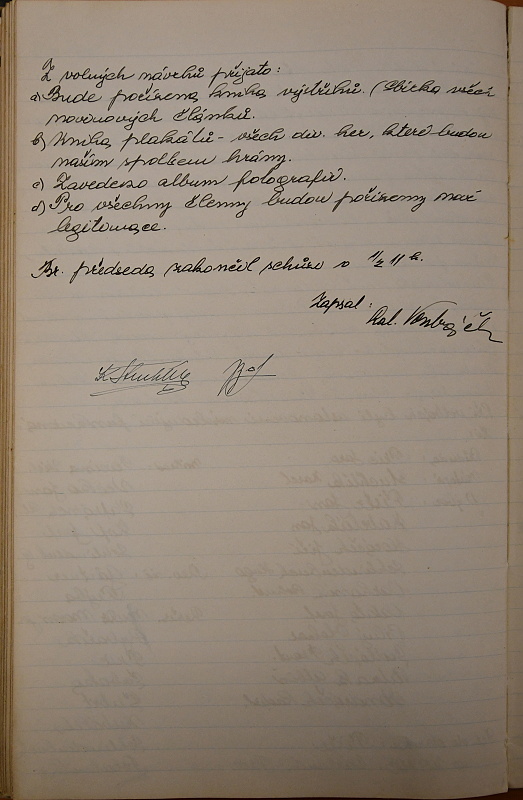 Z volných návrhů přijato:
a) Bude pořízena kniha výstřihů. (Sbírka všech
novinových článků.
b) Kniha plakátů - všech div. her, které budou
naším spolkem hrány.
c) Zavedeno album fotografií.
d) Pro všechny členy budou pořízeny nové
legitimace.
Br. předseda zakončil schůzi o 1/2 11 h.
Zapsal: